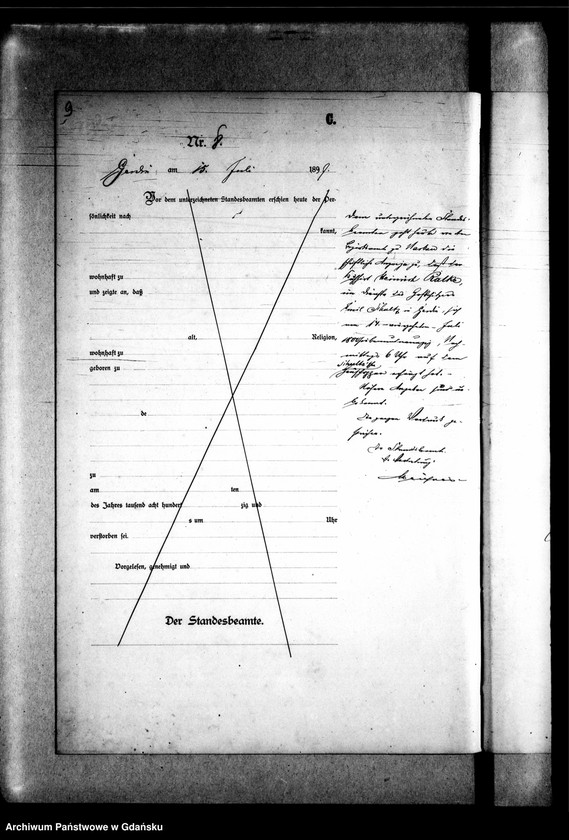 9
C.
Nr. 8.
am 15. Juli 1899.
Vor dem unterzeichneten Standesbeamten erschien heute der Per-
sönlichkeit nach
kannt,
wohnhaft zu
und zeigte an, daß
alt, Religion,
wohnhaft zu
geboren zu
de
zu
am ten
des Jahres tausend acht hundert zig und
s um Uhr
verstorben sei.
Vorgelesen, genehmigt und
Der Standesbeamte.
Dem unterzeichneten Standes-
beamten geht heute von dem
zu die
schriftliche Anzeige zu, daß der
Heinrich Radtke,
im Dienste des Hofbesitzers
Emil in sich
am 14. vierzehnten Juli
Nach-
mittags 6 Uhr auf dem
erhängt hat. —
Nähere Angaben sind un-
bekannt.
Der Standesbeamte
In Vertretung
Archiwum Państwowe w Gdańsku